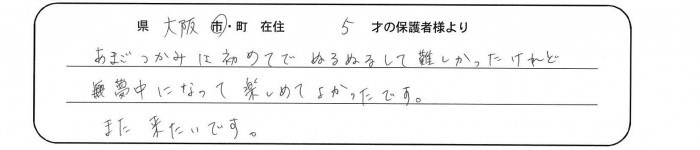 県 大阪 市・町 在住 5 才の保護者様より
あまごつかみは初めてで ぬるぬるして難しかったけれど
無夢中になって楽しめてよかったです。
また 来たいです。